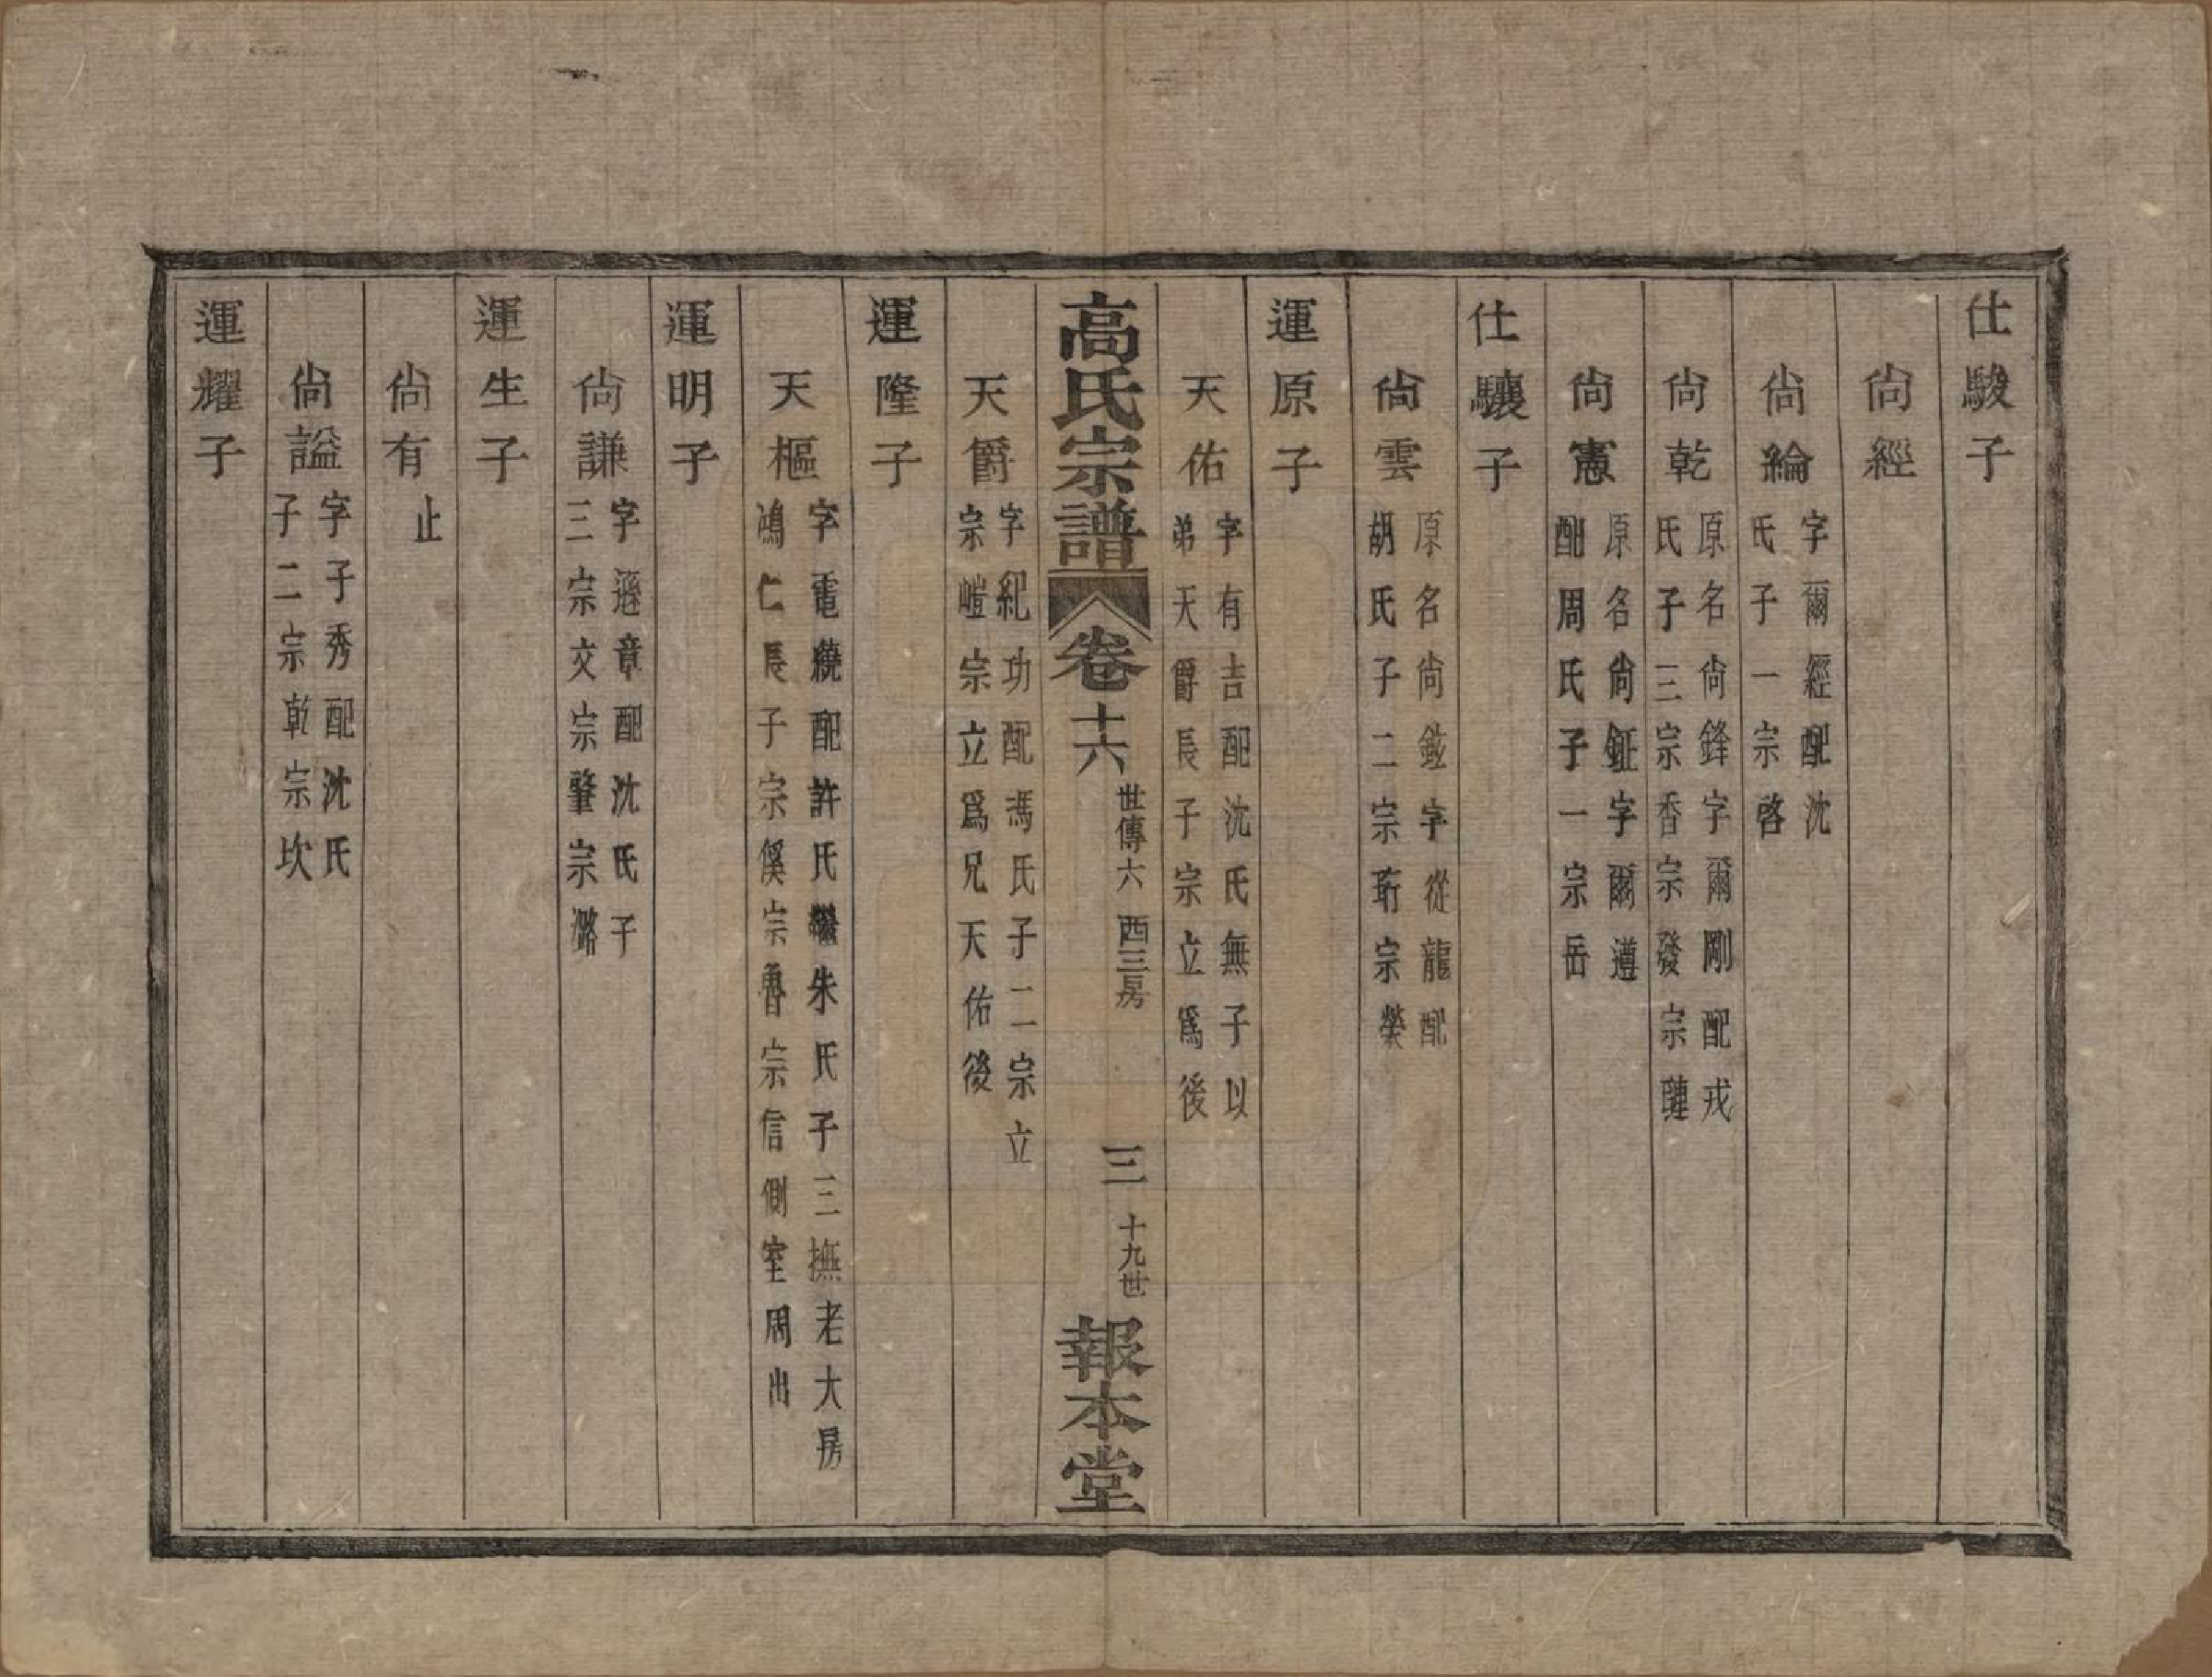 仕駿子
尙經
尙綸
字爾經配沈
氏子一宗啓
尙乾
原名尙鋒字爾剛配戎
氏子三宗香宗發宗璉
尙憲
原名尙鉦字爾遵
配周氏子一宗岳
仕驤子
尙雲
原名尙鉉字從龍配
胡氏子二宗珩宗榮
運原子
天佑
字有吉配沈氏無子以
弟天爵長子宗立爲後
高氏宗譜 卷十六 世傳六 西三房 三 十九世 報本堂
天爵
字紀功配馮氏子二宗立
宗嵦宗立爲兄天佑後
運隆子
天樞
字電繞配許氏繼朱氏子三撫老大房
鴻仁長子宗傒宗魯宗信側室周出
運明子
尙謙
字遜章配沈氏子
三宗文宗肇宗潞
運生子
尙有
止
尙謚
字子秀配沈氏
子二宗乾宗坎
運耀子